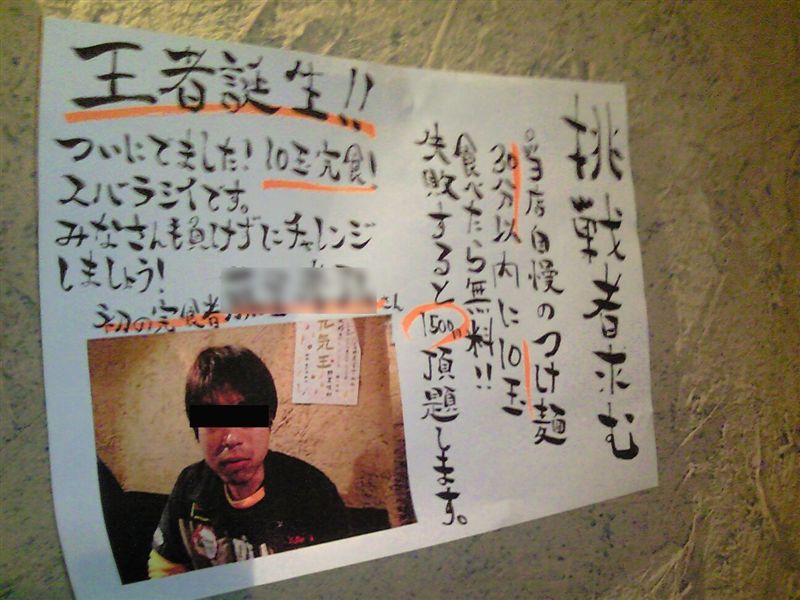 挑戦者求む
。当店自慢のつけ麺
30分以内に10玉
食べたら無料!!
失敗すると1500円
頂題します。
王者誕生!!
ついにでました!10玉完食!
スバラシイです。
みなさんも負けずにチャレンジ
しましょう!
初の完食者
さん
元気玉